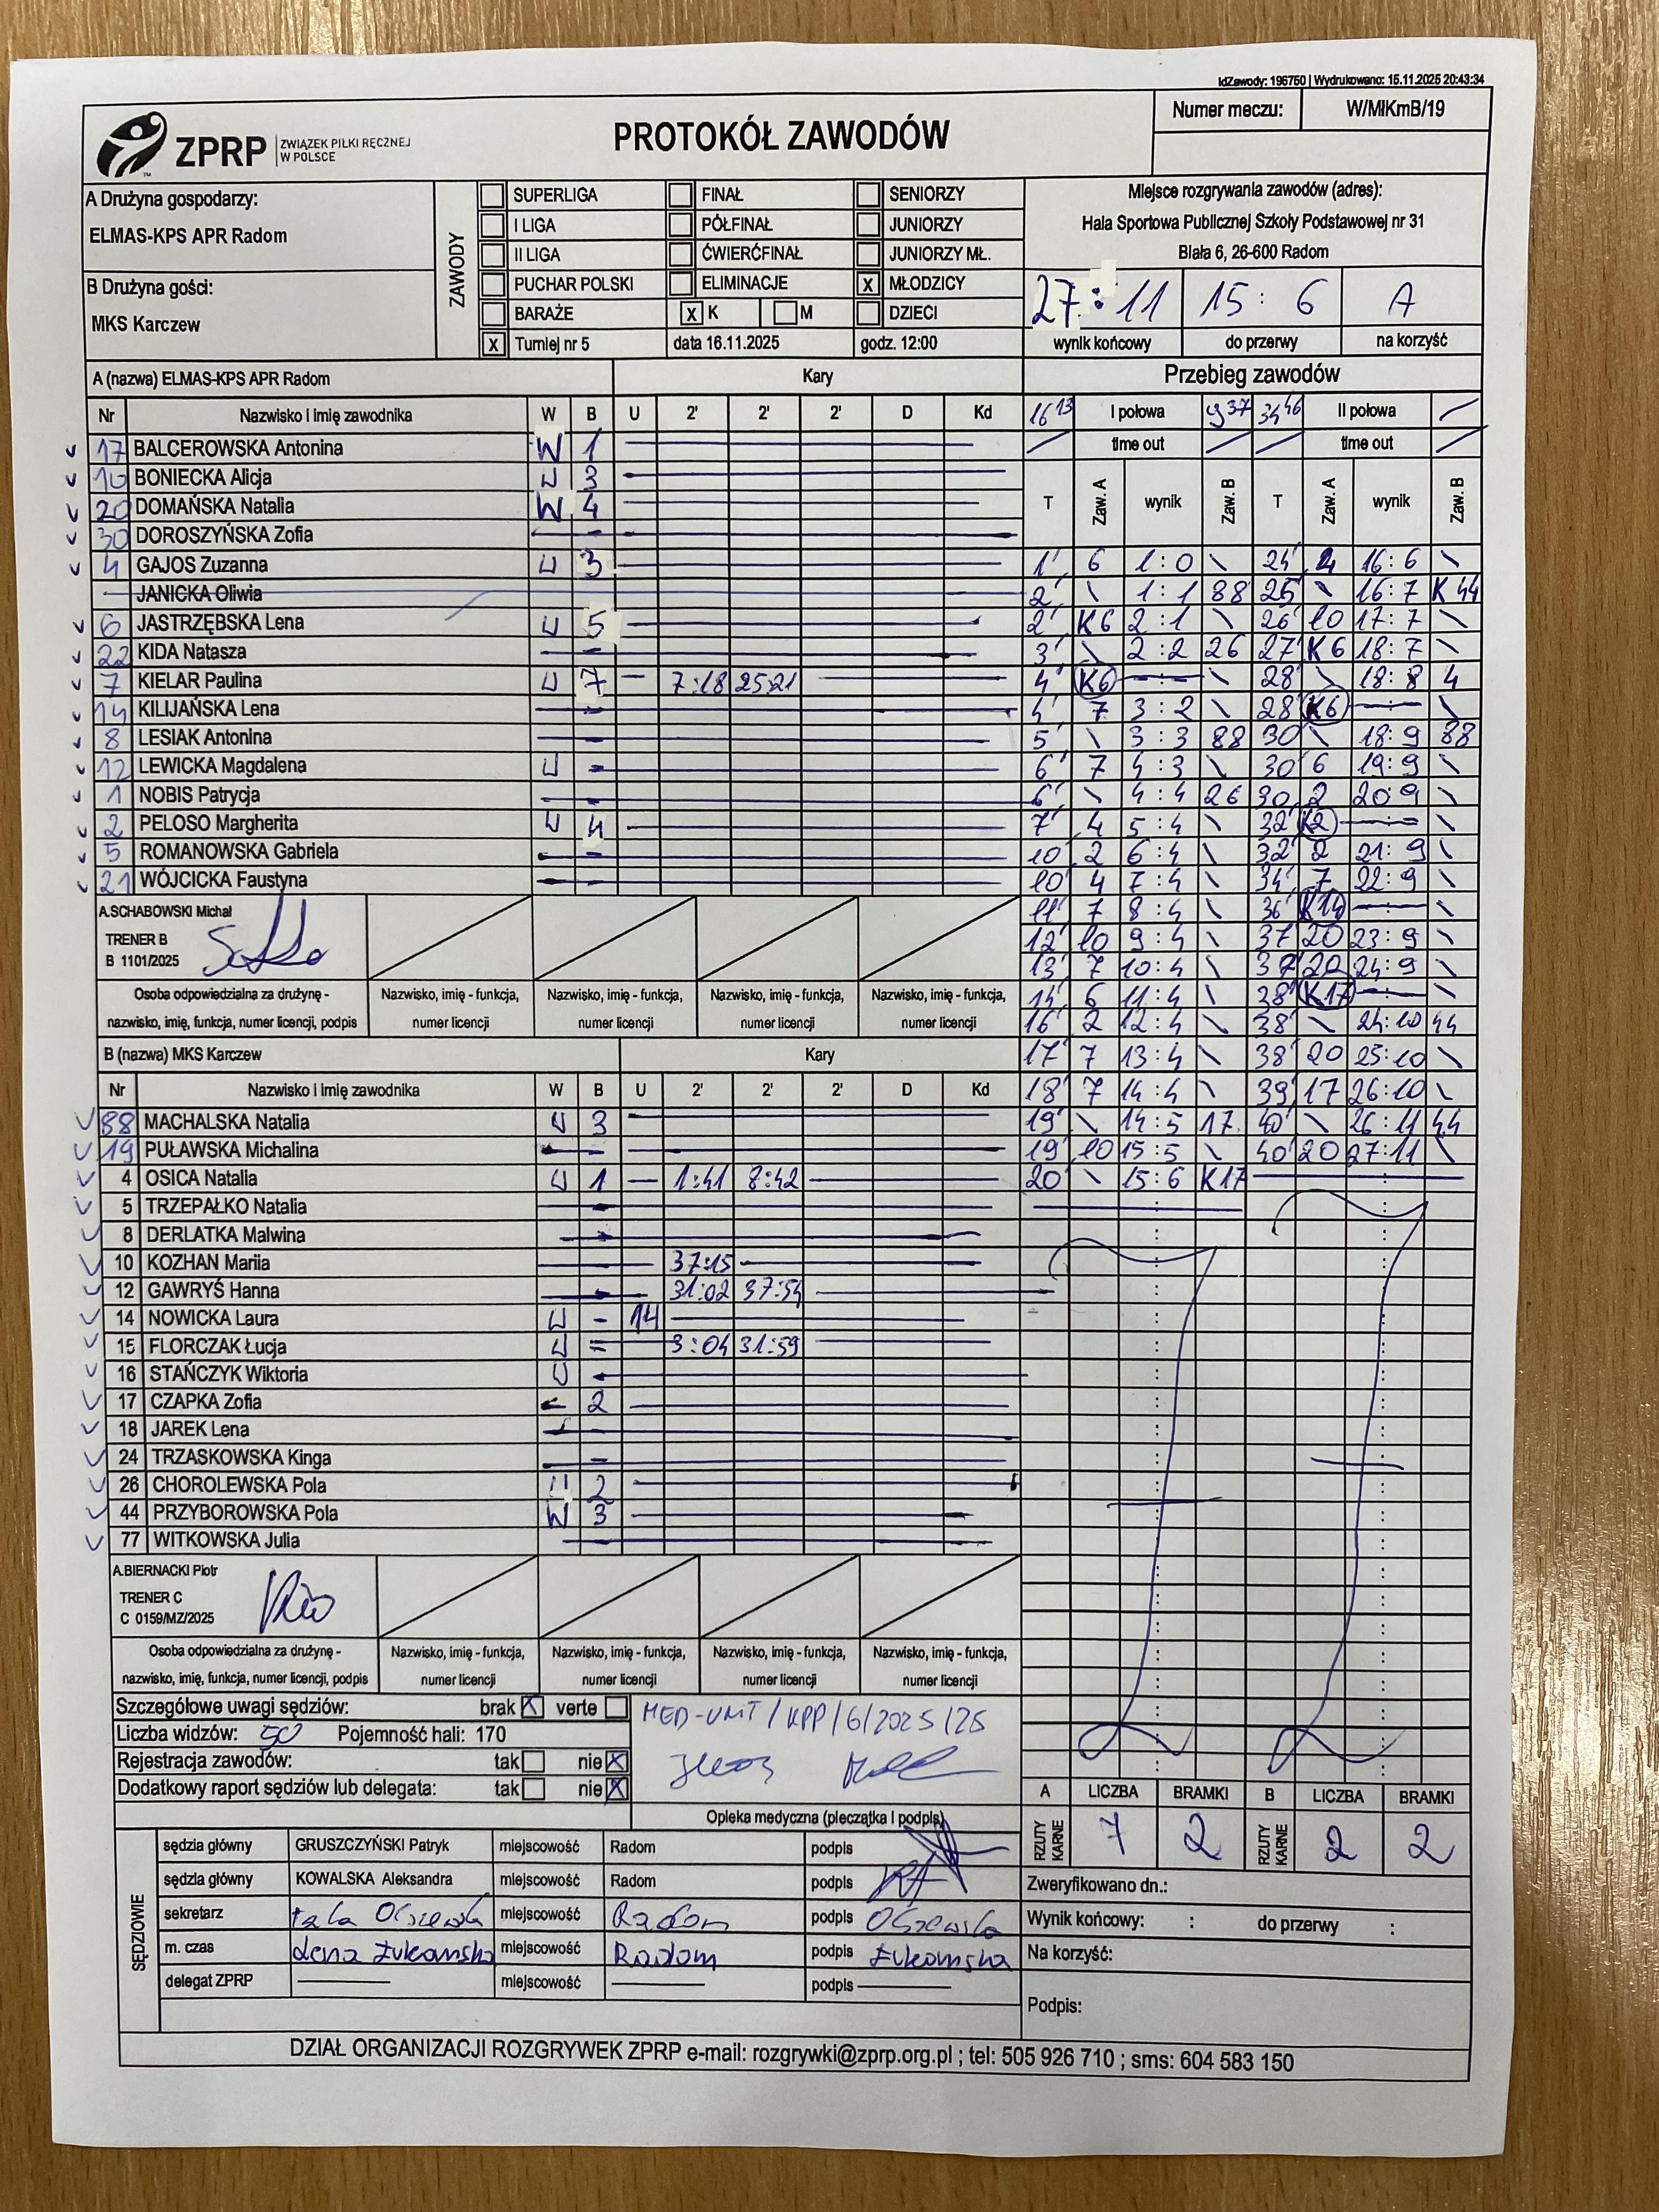 IdZawody: 196750 | Wydrukowano: 15.11.2025 20:43:34
ZPRP ZWIĄZEK PIŁKI RĘCZNEJ W POLSCE
PROTOKÓŁ ZAWODÓW
Numer meczu: W/MłKmB/19
A Drużyna gospodarzy:
ELMAS-KPS APR Radom
B Drużyna gości:
MKS Karczew
ZAWODY
SUPERLIGA FINAŁ SENIORZY
I LIGA PÓŁFINAŁ JUNIORZY
II LIGA ĆWIERĆFINAŁ JUNIORZY MŁ.
PUCHAR POLSKI ELIMINACJE X MŁODZICY
BARAŻE X K M DZIECI
X Turniej nr 5 data 16.11.2025 godz. 12:00
Miejsce rozgrywania zawodów (adres):
Hala Sportowa Publicznej Szkoły Podstawowej nr 31
Biała 6, 26-600 Radom
27:11 15:6 A
wynik końcowy do przerwy na korzyść
A (nazwa) ELMAS-KPS APR Radom Kary
Nr Nazwisko i imię zawodnika W B U 2' 2' 2' D Kd
17 BALCEROWSKA Antonina W 1
10 BONIECKA Alicja W 3
20 DOMAŃSKA Natalia W 4
30 DOROSZYŃSKA Zofia -
4 GAJOS Zuzanna W 3
JANICKA Oliwia
6 JASTRZĘBSKA Lena W 5
22 KIDA Natasza -
7 KIELAR Paulina W 7 - 7:18 25:21
14 KILIJAŃSKA Lena
8 LESIAK Antonina
12 LEWICKA Magdalena W -
1 NOBIS Patrycja
2 PELOSO Margherita W 4
5 ROMANOWSKA Gabriela -
21 WÓJCICKA Faustyna -
A.SCHABOWSKI Michał
TRENER B
B 1101/2025
Osoba odpowiedzialna za drużynę - nazwisko, imię, funkcja, numer licencji, podpis
Nazwisko, imię - funkcja, numer licencji
Nazwisko, imię - funkcja, numer licencji
Nazwisko, imię - funkcja, numer licencji
Nazwisko, imię - funkcja, numer licencji
B (nazwa) MKS Karczew Kary
Nr Nazwisko i imię zawodnika W B U 2' 2' 2' D Kd
88 MACHALSKA Natalia W 3
19 PUŁAWSKA Michalina -
4 OSICA Natalia W 1 - 1:41 8:42
5 TRZEPAŁKO Natalia
8 DERLATKA Malwina
10 KOZHAN Mariia 37:15
12 GAWRYŚ Hanna 31:02 37:54
14 NOWICKA Laura W - 14
15 FLORCZAK Łucja W - 3:04 31:59
16 STAŃCZYK Wiktoria W
17 CZAPKA Zofia - 2
18 JAREK Lena
24 TRZASKOWSKA Kinga -
26 CHOROLEWSKA Pola W 2
44 PRZYBOROWSKA Pola W 3
77 WITKOWSKA Julia
A.BIERNACKI Piotr
TRENER C
C 0159/MZ/2025
Osoba odpowiedzialna za drużynę - nazwisko, imię, funkcja, numer licencji, podpis
Nazwisko, imię - funkcja, numer licencji
Nazwisko, imię - funkcja, numer licencji
Nazwisko, imię - funkcja, numer licencji
Nazwisko, imię - funkcja, numer licencji
Przebieg zawodów
16 13 I połowa 9 37 34 46 II połowa
time out time out
T Zaw. A wynik Zaw. B T Zaw. A wynik Zaw. B
1' 6 1:0 \ 24' 4 16:6 \
2' \ 1:1 88 25' \ 16:7 K44
2' K6 2:1 \ 26' 10 17:7 \
3' \ 2:2 26 27' K6 18:7 \
4' K6 \ 28' \ 18:8 4
4' 7 3:2 \ 28' K6 \
5' \ 3:3 88 30' \ 18:9 88
6' 7 4:3 \ 30' 6 19:9 \
6' \ 4:4 26 30' 2 20:9 \
7' 4 5:4 \ 32' K2 \
10' 2 6:4 \ 32' 2 21:9 \
10' 4 7:4 \ 34' 7 22:9 \
11' 7 8:4 \ 36' K14 \
12' 10 9:4 \ 37' 20 23:9 \
13' 7 10:4 \ 37' 20 24:9 \
14' 6 11:4 \ 38' K17 \
16' 2 12:4 \ 38' \ 24:10 44
17' 7 13:4 \ 38' 20 25:10 \
18' 7 14:4 \ 39' 17 26:10 \
19' \ 14:5 17 40' \ 26:11 44
19' 10 15:5 \ 40' 20 27:11 \
20' \ 15:6 K17
Szczegółowe uwagi sędziów: brak X verte
Liczba widzów: 50 Pojemność hali: 170
Rejestracja zawodów: tak nie X
Dodatkowy raport sędziów lub delegata: tak nie X
MED-UNIT/KPP/6/2025/25
Opieka medyczna (pieczątka i podpis)
A LICZBA BRAMKI B LICZBA BRAMKI
RZUTY KARNE 7 2 RZUTY KARNE 2 2
SĘDZIOWIE
sędzia główny GRUSZCZYŃSKI Patryk miejscowość Radom podpis
sędzia główny KOWALSKA Aleksandra miejscowość Radom podpis
sekretarz Olszewska miejscowość Radom podpis Olszewska
m. czas Lena Żukowska miejscowość Radom podpis Żukowska
delegat ZPRP miejscowość podpis
Zweryfikowano dn.:
Wynik końcowy: : do przerwy :
Na korzyść:
Podpis:
DZIAŁ ORGANIZACJI ROZGRYWEK ZPRP e-mail: rozgrywki@zprp.org.pl ; tel: 505 926 710 ; sms: 604 583 150